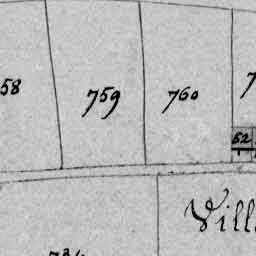 58
759
760
7
52
Vill